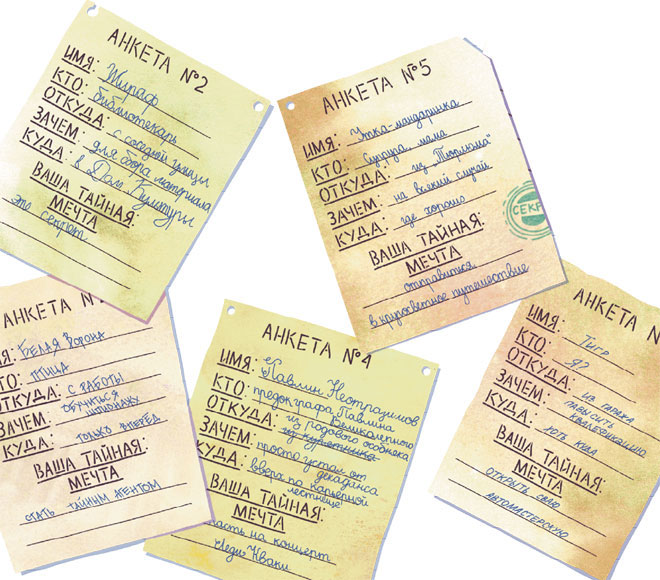 АНКЕТА №2
ИМЯ: Жираф
КТО: библиотекарь
ОТКУДА: с соседней улицы
ЗАЧЕМ: для сбора материала
КУДА: в Дом Культуры
ВАША ТАЙНАЯ:
МЕЧТА
это секрет
АНКЕТА №5
ИМЯ: Утка-мандаринка
КТО: Супруга, мама
ОТКУДА: из "Тюрьмы"
ЗАЧЕМ: на всякий случай
КУДА: где хорошо
СЕКР
ВАША ТАЙНАЯ:
МЕЧТА
отправиться
в кругосветное путешествие
АНКЕТА №
Я: БЕЛАЯ ВОРОНА
ТО: ПТИЦА
ОТКУДА: С РАБОТЫ
ОБУЧИТЬСЯ
ЗАЧЕМ: ШПИОНАЖУ
КУДА: ТОЛЬКО ВПЕРЁД
ВАША ТАЙНАЯ:
МЕЧТА
СТАТЬ ТАЙНЫМ АГЕНТОМ
АНКЕТА №4
ИМЯ: Павлин Неотразимов
КТО: предок графа Павлина
Великолепного
ОТКУДА: из родового особняка
из курятника
ЗАЧЕМ: просто устал от
декаданса
КУДА: вверх по карьерной
лестнице
ВАША ТАЙНАЯ:
МЕЧТА
попасть на концерт
Леди Кваки
АНКЕТА №
ИМЯ: ТИГР
КТО: Я?
ОТКУДА: ИЗ ГАРАЖА
ЗАЧЕМ: ПОВЫСИТЬ
КВАЛИФИКАЦИЮ
КУДА: ХОТЬ КУДА
ВАША ТАЙНАЯ:
МЕЧТА
ОТКРЫТЬ СВОЮ
АВТОМАСТЕРСКУЮ